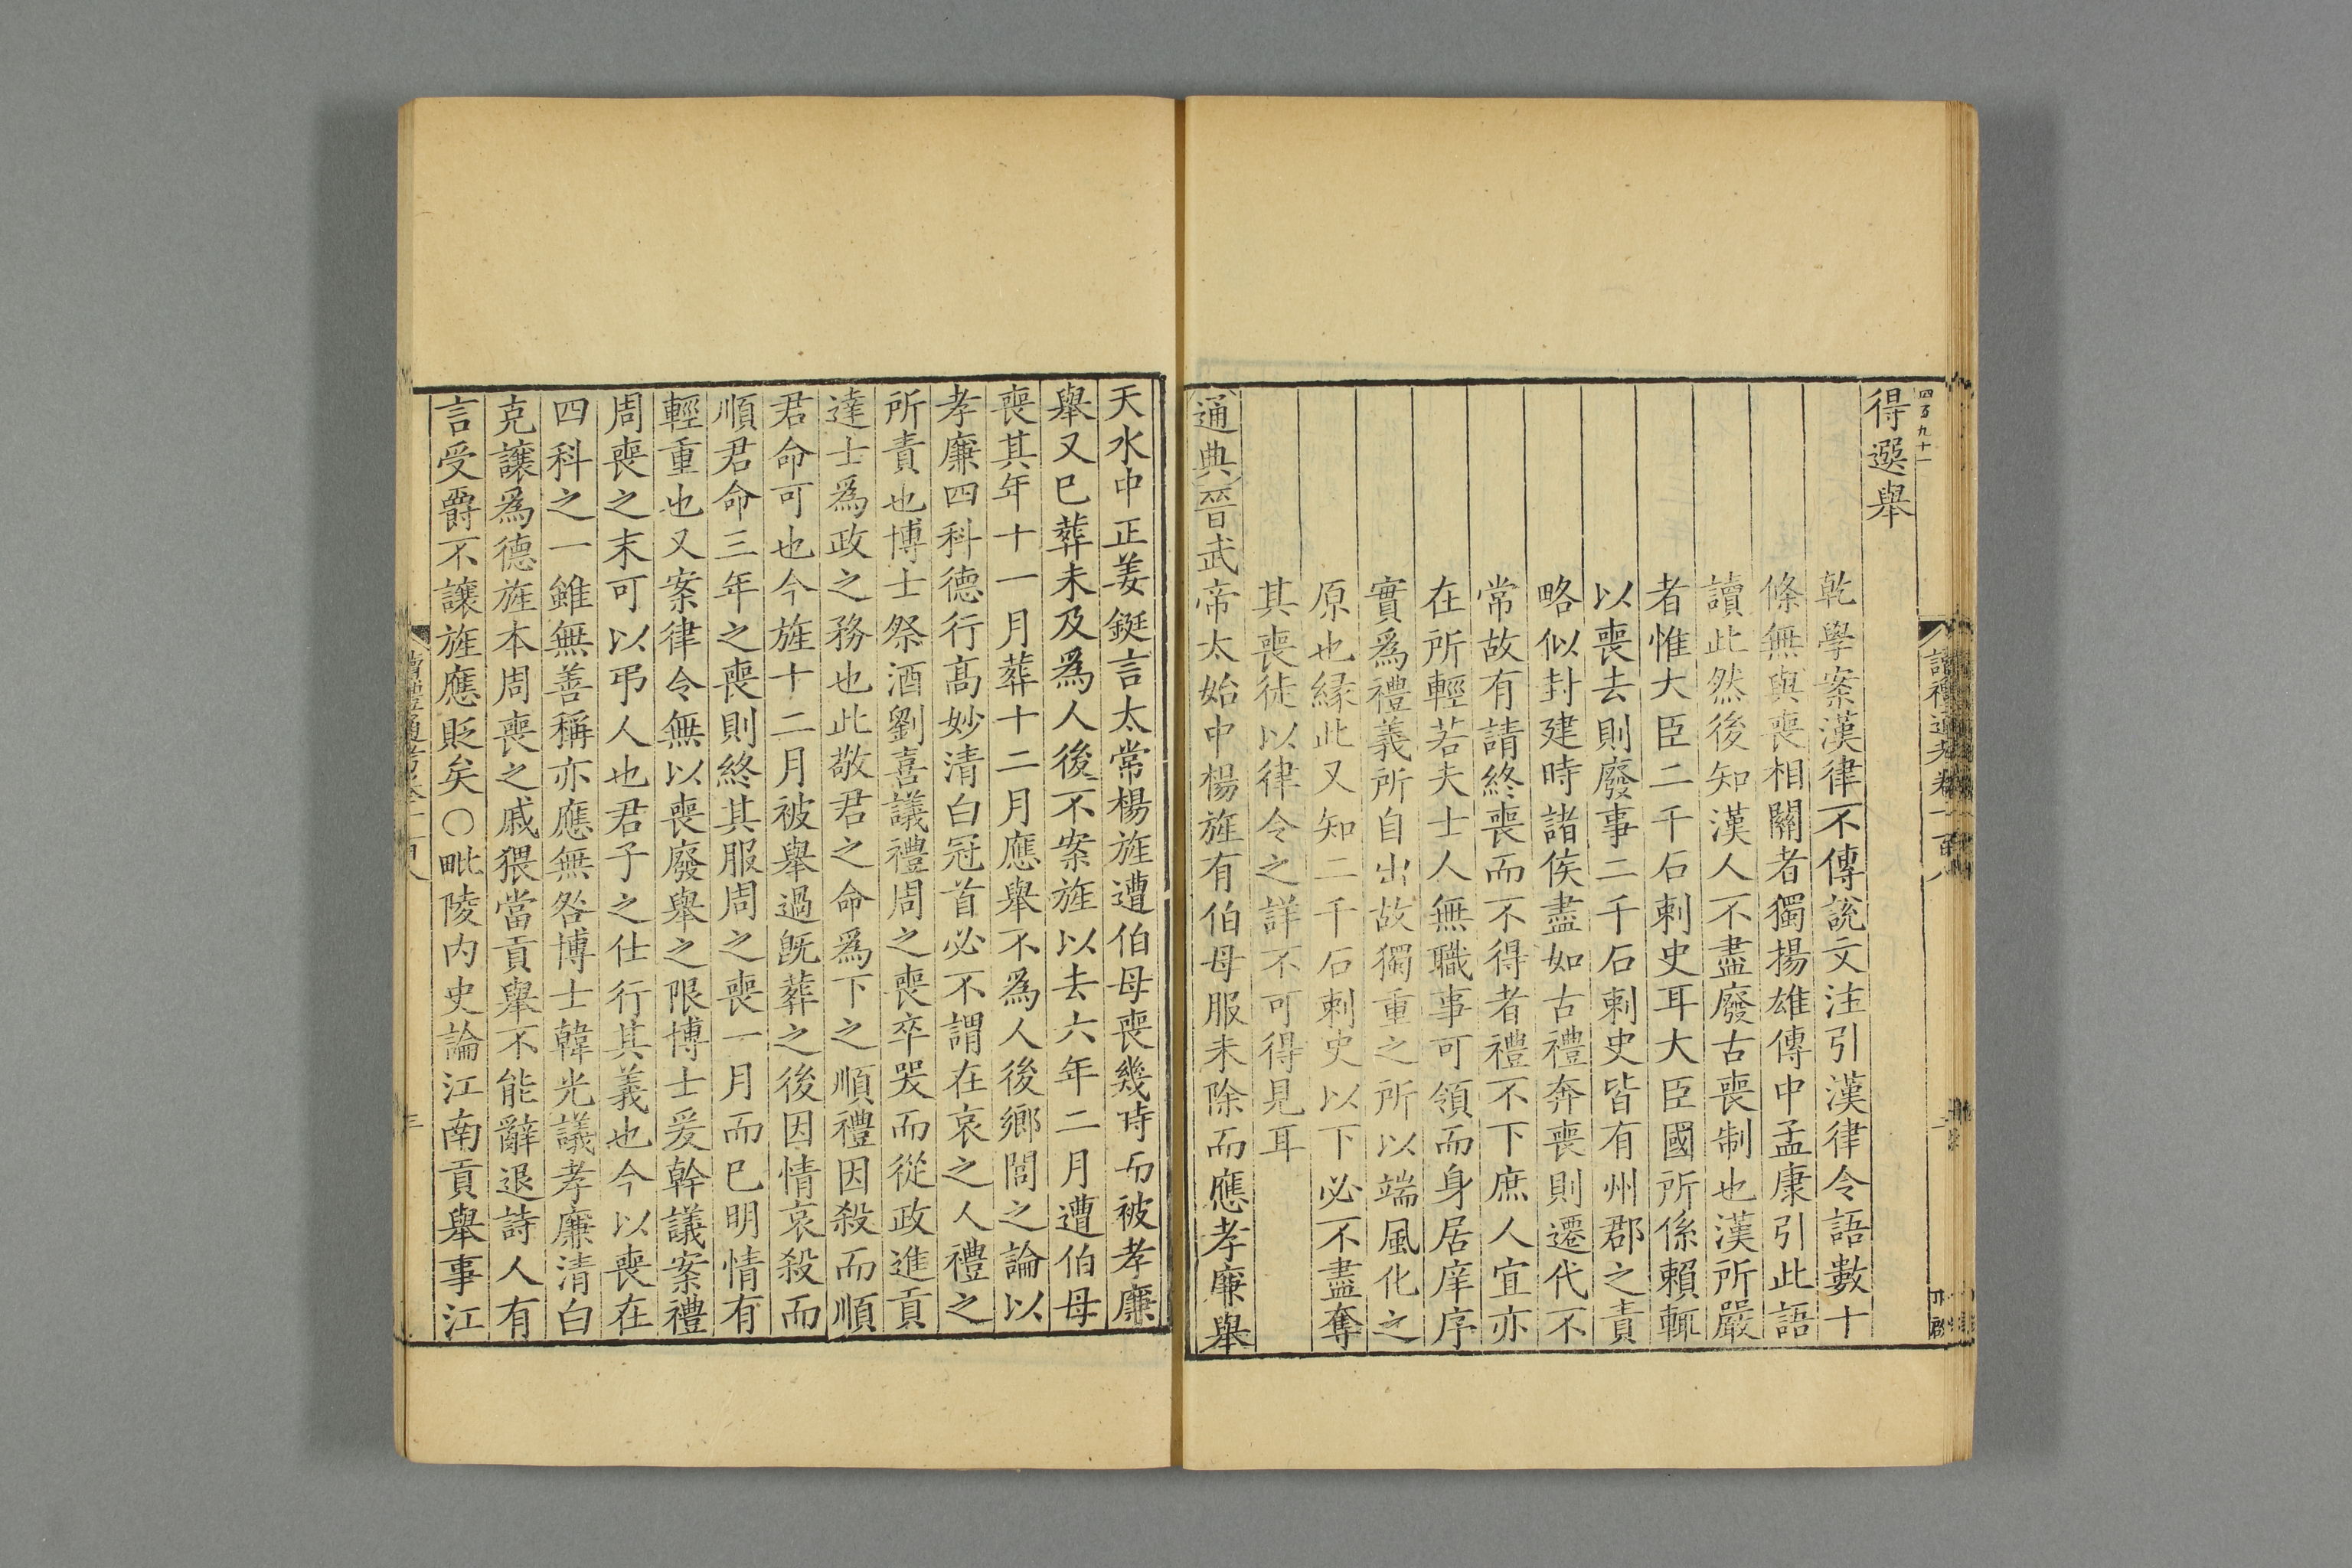 四百九十一
讀禮通考卷一百八
得選舉
乾學案漢律不傳說文注引漢律令語數十
條無與喪相關者獨揚雄傳中孟康引此語
讀此然後知漢人不盡廢古喪制也漢所嚴
者惟大臣二千石刺史耳大臣國所係賴輒
以喪去則廢事二千石刺史皆有州郡之責
略似封建時諸侯盡如古禮奔喪則遷代不
常故有請終喪而不得者禮不下庶人宜亦
在所輕若夫士人無職事可領而身居庠序
實爲禮義所自出故獨重之所以端風化之
原也縁此又知二千石刺史以下必不盡奪
其喪徒以律令之詳不可得見耳
通典晉武帝太始中楊旌有伯母服未除而應孝廉舉
天水中正姜鋌言太常楊旌遭伯母喪幾時而被孝廉
舉又已葬未及爲人後不案旌以去六年二月遭伯母
喪其年十一月葬十二月應舉不爲人後鄉閭之論以
孝廉四科德行高妙清白冠首必不謂在哀之人禮之
所責也博士祭酒劉喜議禮周之喪卒哭而從政進貢
達士爲政之務也此敬君之命爲下之順禮因殺而順
君命可也今旌十二月被舉過旣葬之後因情哀殺而
順君命三年之喪則終其服周之喪一月而已明情有
輕重也又案律令無以喪廢舉之限博士爰幹議案禮
周喪之末可以弔人也君子之仕行其義也今以喪在
四科之一雖無善稱亦應無咎博士韓光議孝廉清白
克讓爲德旌本周喪之戚猥當貢舉不能辭退詩人有
言受爵不讓旌應貶矣○毗陵内史論江南貢舉事江
讀禮通考卷一百八
三